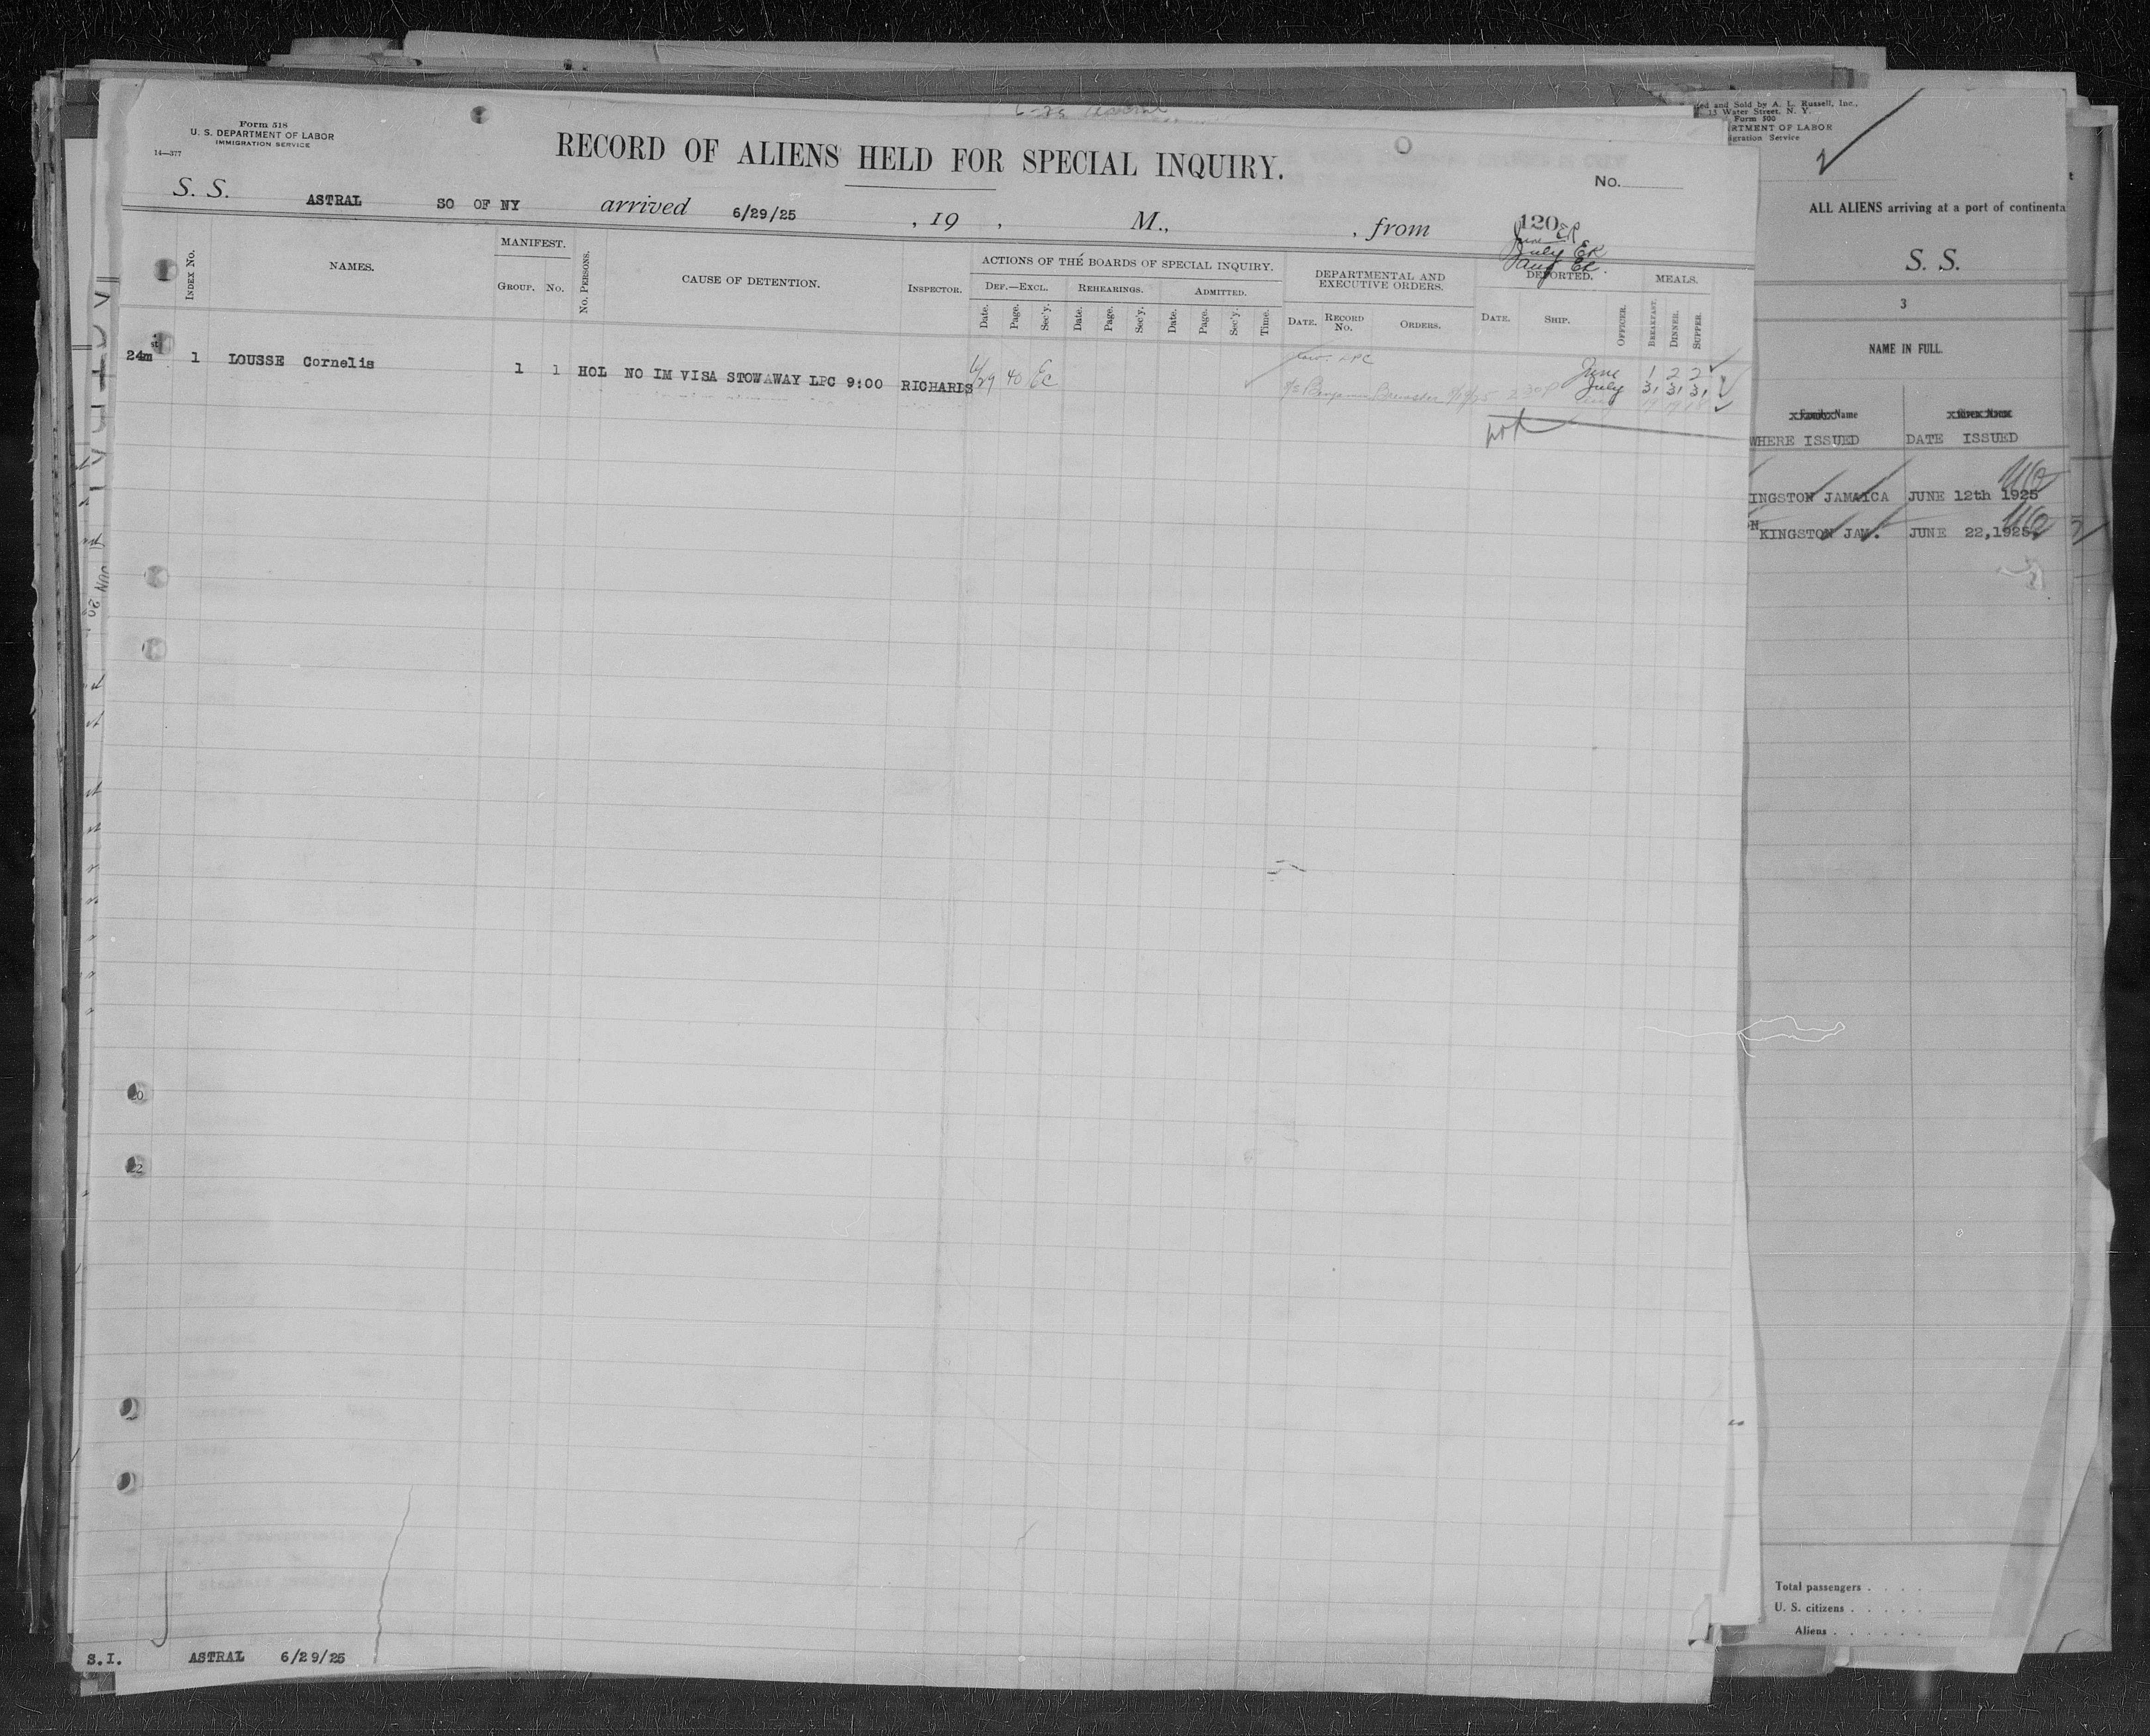 Form 518
U. S. DEPARTMENT OF LABOR
IMMIGRATION SERVICE
14—377
RECORD OF ALIENS HELD FOR SPECIAL INQUIRY.
No.
S. S. ASTRAL SO OF NY arrived 6/29/25, 19 , M., , from
120
June ER
July ER
Aug ER.
INDEX No.
NAMES.
MANIFEST.
GROUP. No.
No. PERSONS.
CAUSE OF DETENTION.
INSPECTOR.
ACTIONS OF THE BOARDS OF SPECIAL INQUIRY.
DEF.—EXCL. REHEARINGS. ADMITTED.
Date. Page. Sec'y. Date. Page. Sec'y. Date. Page. Sec'y. Time.
DEPARTMENTAL AND
EXECUTIVE ORDERS.
DATE. RECORD No. ORDERS.
DEPORTED.
DATE. SHIP. OFFICER.
MEALS.
BREAKFAST. DINNER. SUPPER.
24m 1 LOUSSE Cornelis 1 1 HOL NO IM VISA STOWAWAY LPC 9:00 RICHARDS 6/29 40 EC
LPC
S/S Benjamin Brewster
June 1 2 2
July 31 31 31
20
22
S.I. ASTRAL 6/29/25
JUN 29
and Sold by A. L. Russell, Inc.,
15 Water Street, N. Y.
Form 500
ARTMENT OF LABOR
Immigration Service
ALL ALIENS arriving at a port of continenta
S. S.
3
NAME IN FULL.
Family Name Given Name
WHERE ISSUED DATE ISSUED
INGSTON JAMAICA JUNE 12th 1925
KINGSTON JAM. JUNE 22,1925.
Total passengers . . . .
U. S. citizens . . . . .
Aliens . . . . . .